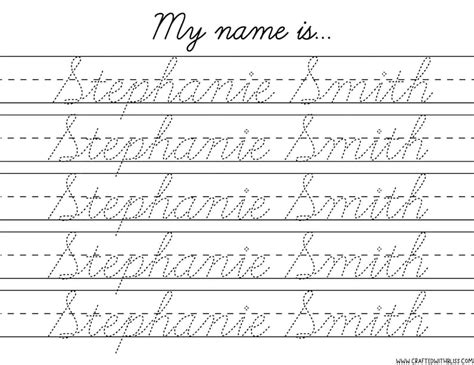 My name is...
Stephanie Smith
Stephanie Smith
Stephanie Smith
Stephanie Smith
Stephanie Smith
WWW.CRAFTEDWITHBLISS.COM